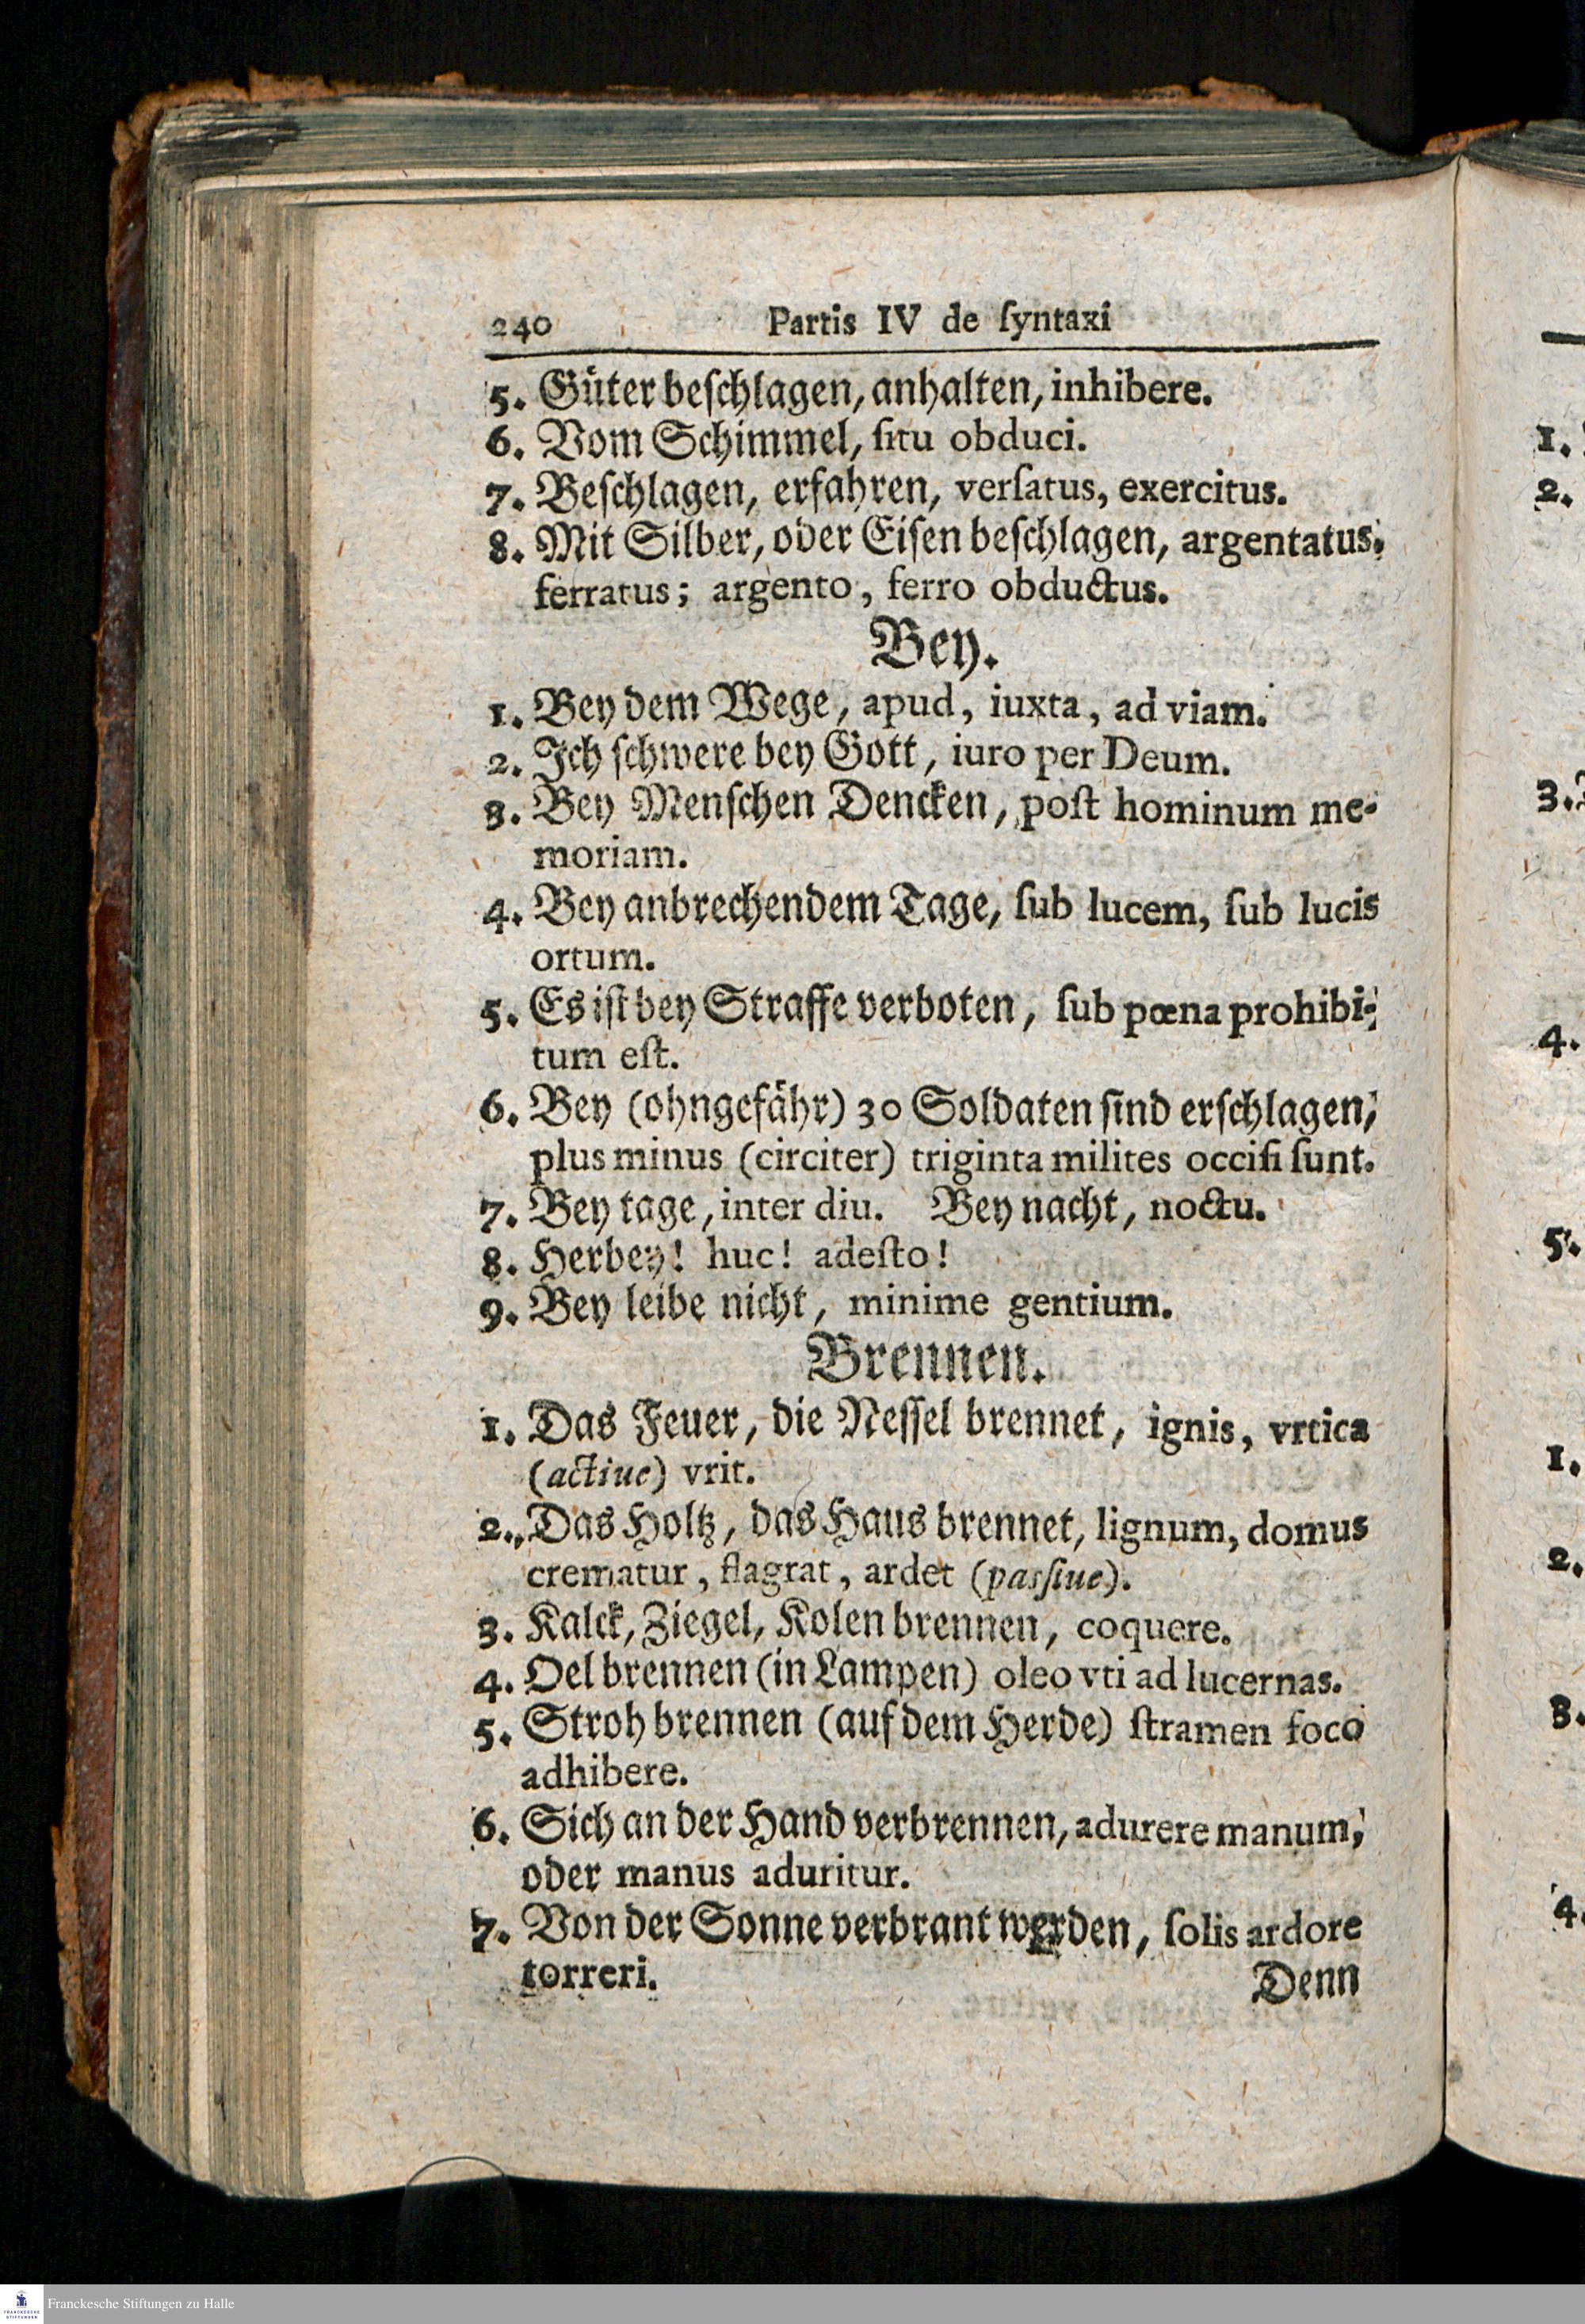 240 Partis IV de ſyntaxi
5. Güter beſchlagen, anhalten, inhibere.
6. Vom Schimmel, ſitu obduci.
7. Beſchlagen, erfahren, verſatus, exercitus.
8. Mit Silber, oder Eiſen beſchlagen, argentatus,
ferratus; argento, ferro obductus.
Bey.
1. Bey dem Wege, apud, iuxta, ad viam.
2. Ich ſchwere bey Gott, iuro per Deum.
3. Bey Menſchen Dencken, poſt hominum me-
moriam.
4. Bey anbrechendem Tage, ſub lucem, ſub lucis
ortum.
5. Es iſt bey Straffe verboten, ſub pœna prohibi-
tum eſt.
6. Bey (ohngefähr) 30 Soldaten ſind erſchlagen,
plus minus (circiter) triginta milites occiſi ſunt.
7. Bey tage, inter diu. Bey nacht, noctu.
8. Herbey! huc! adeſto!
9. Bey leibe nicht, minime gentium.
Brennen.
1. Das Feuer, die Neſſel brennet, ignis, vrtica
(actiue) vrit.
2. Das Holtz, das Haus brennet, lignum, domus
crematur, flagrat, ardet (pasſiue).
3. Kalck, Ziegel, Kolen brennen, coquere.
4. Oel brennen (in Lampen) oleo vti ad lucernas.
5. Stroh brennen (auf dem Herde) ſtramen foco
adhibere.
6. Sich an der Hand verbrennen, adurere manum,
oder manus aduritur.
7. Von der Sonne verbrant werden, ſolis ardore
torreri.
Denn
1.
2.
3.
4.
5.
1.
2.
3.
4.
Franckesche Stiftungen zu Halle